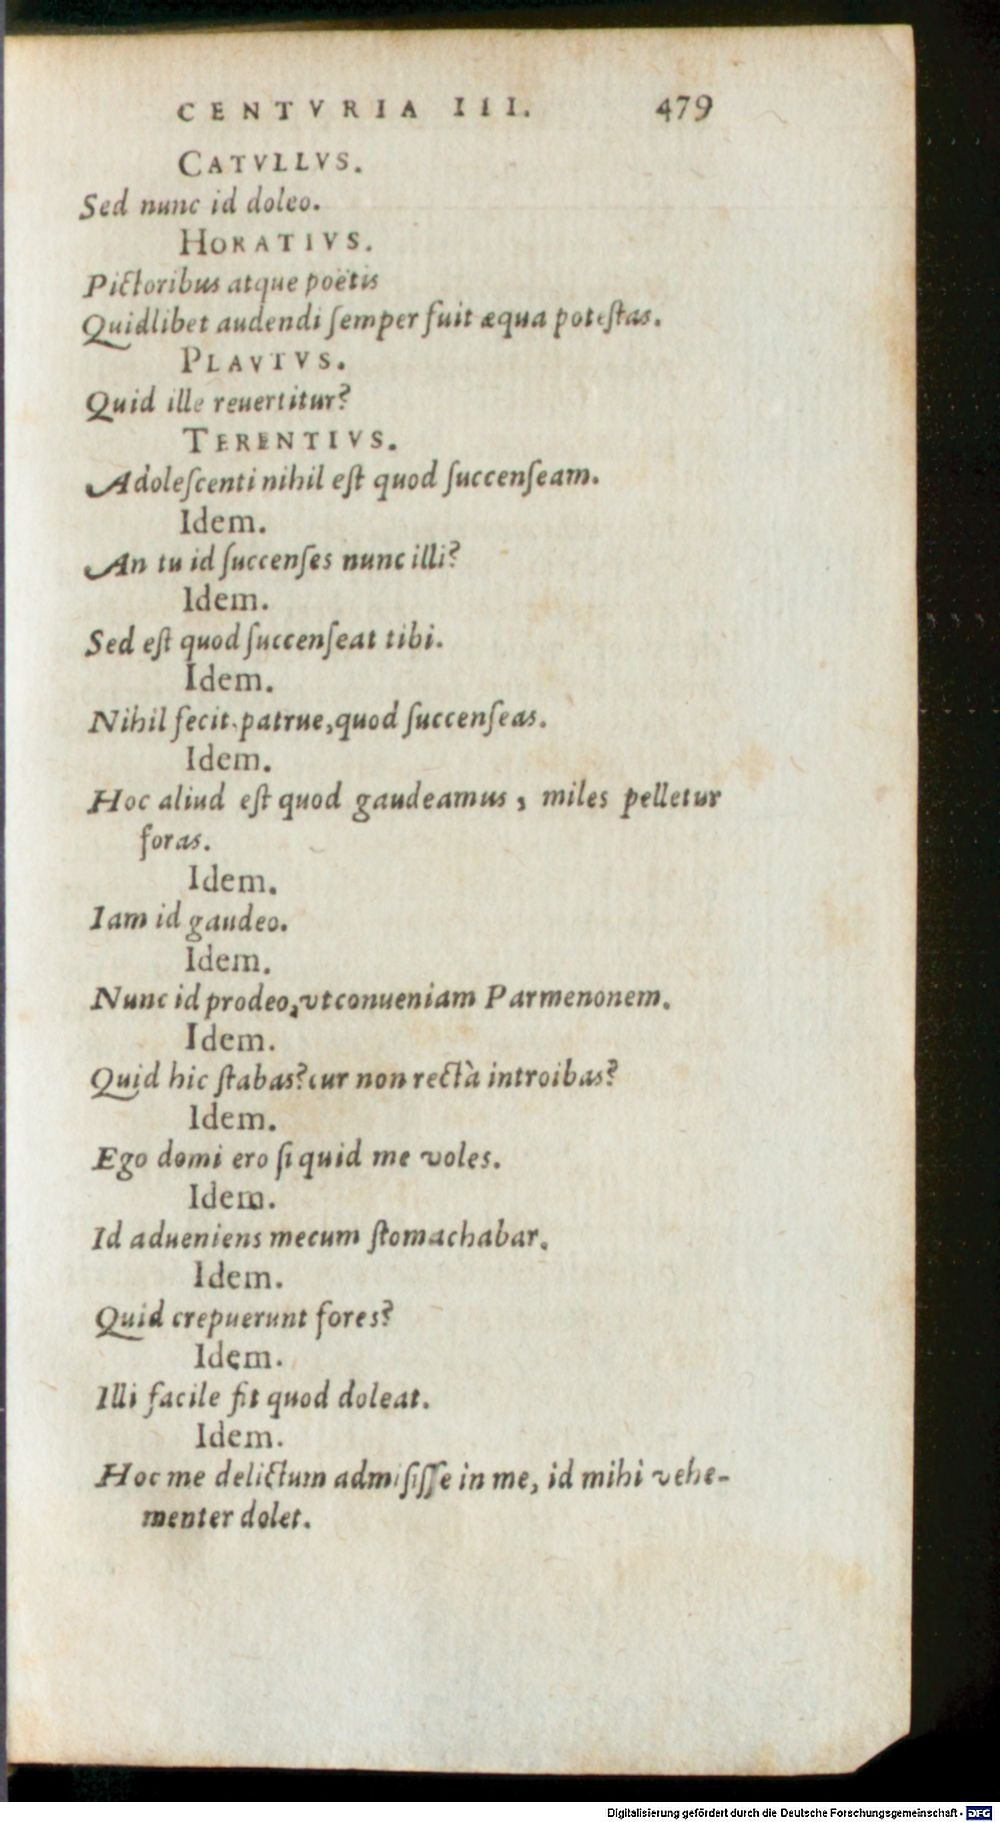 CENTVRIA III. 479
CATVLLVS.
Sed nunc id doleo.
HORATIVS.
Pictoribus atque poëtis
Quidlibet audendi ſemper fuit æqua poteſtas.
PLAVTVS.
Quid ille reuertitur?
TERENTIVS.
Adoleſcenti nihil eſt quod ſuccenſeam.
Idem.
An tu id ſuccenſes nunc illi?
Idem.
Sed eſt quod ſuccenſeat tibi.
Idem.
Nihil fecit, patrue, quod ſuccenſeas.
Idem.
Hoc aliud eſt quod gaudeamus, miles pelletur
foras.
Idem.
Iam id gaudeo.
Idem.
Nunc id prodeo, vt conueniam Parmenonem.
Idem.
Quid hic ſtabas? cur non rectà introibas?
Idem.
Ego domi ero ſi quid me voles.
Idem.
Id adueniens mecum ſtomachabar.
Idem.
Quid crepuerunt fores?
Idem.
Illi facile fit quod doleat.
Idem.
Hoc me delictum admiſiſſe in me, id mihi vehe-
menter dolet.
Digitalisierung gefördert durch die Deutsche Forschungsgemeinschaft - DFG